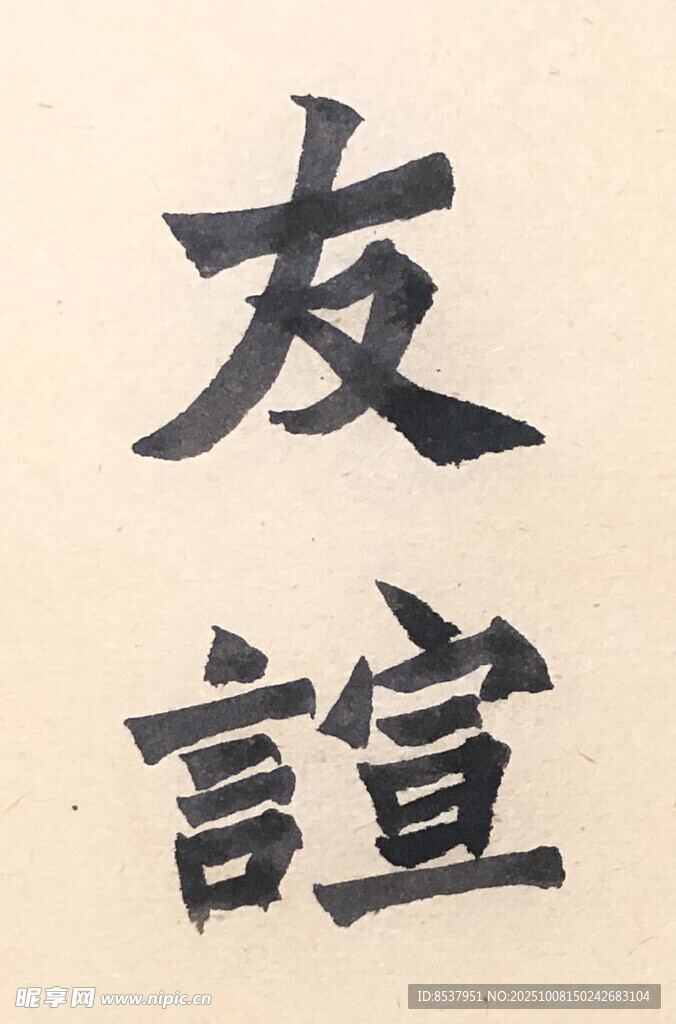 友諠
昵享网 www.nipic.cn
ID:8537951 NO:20251008150242683104